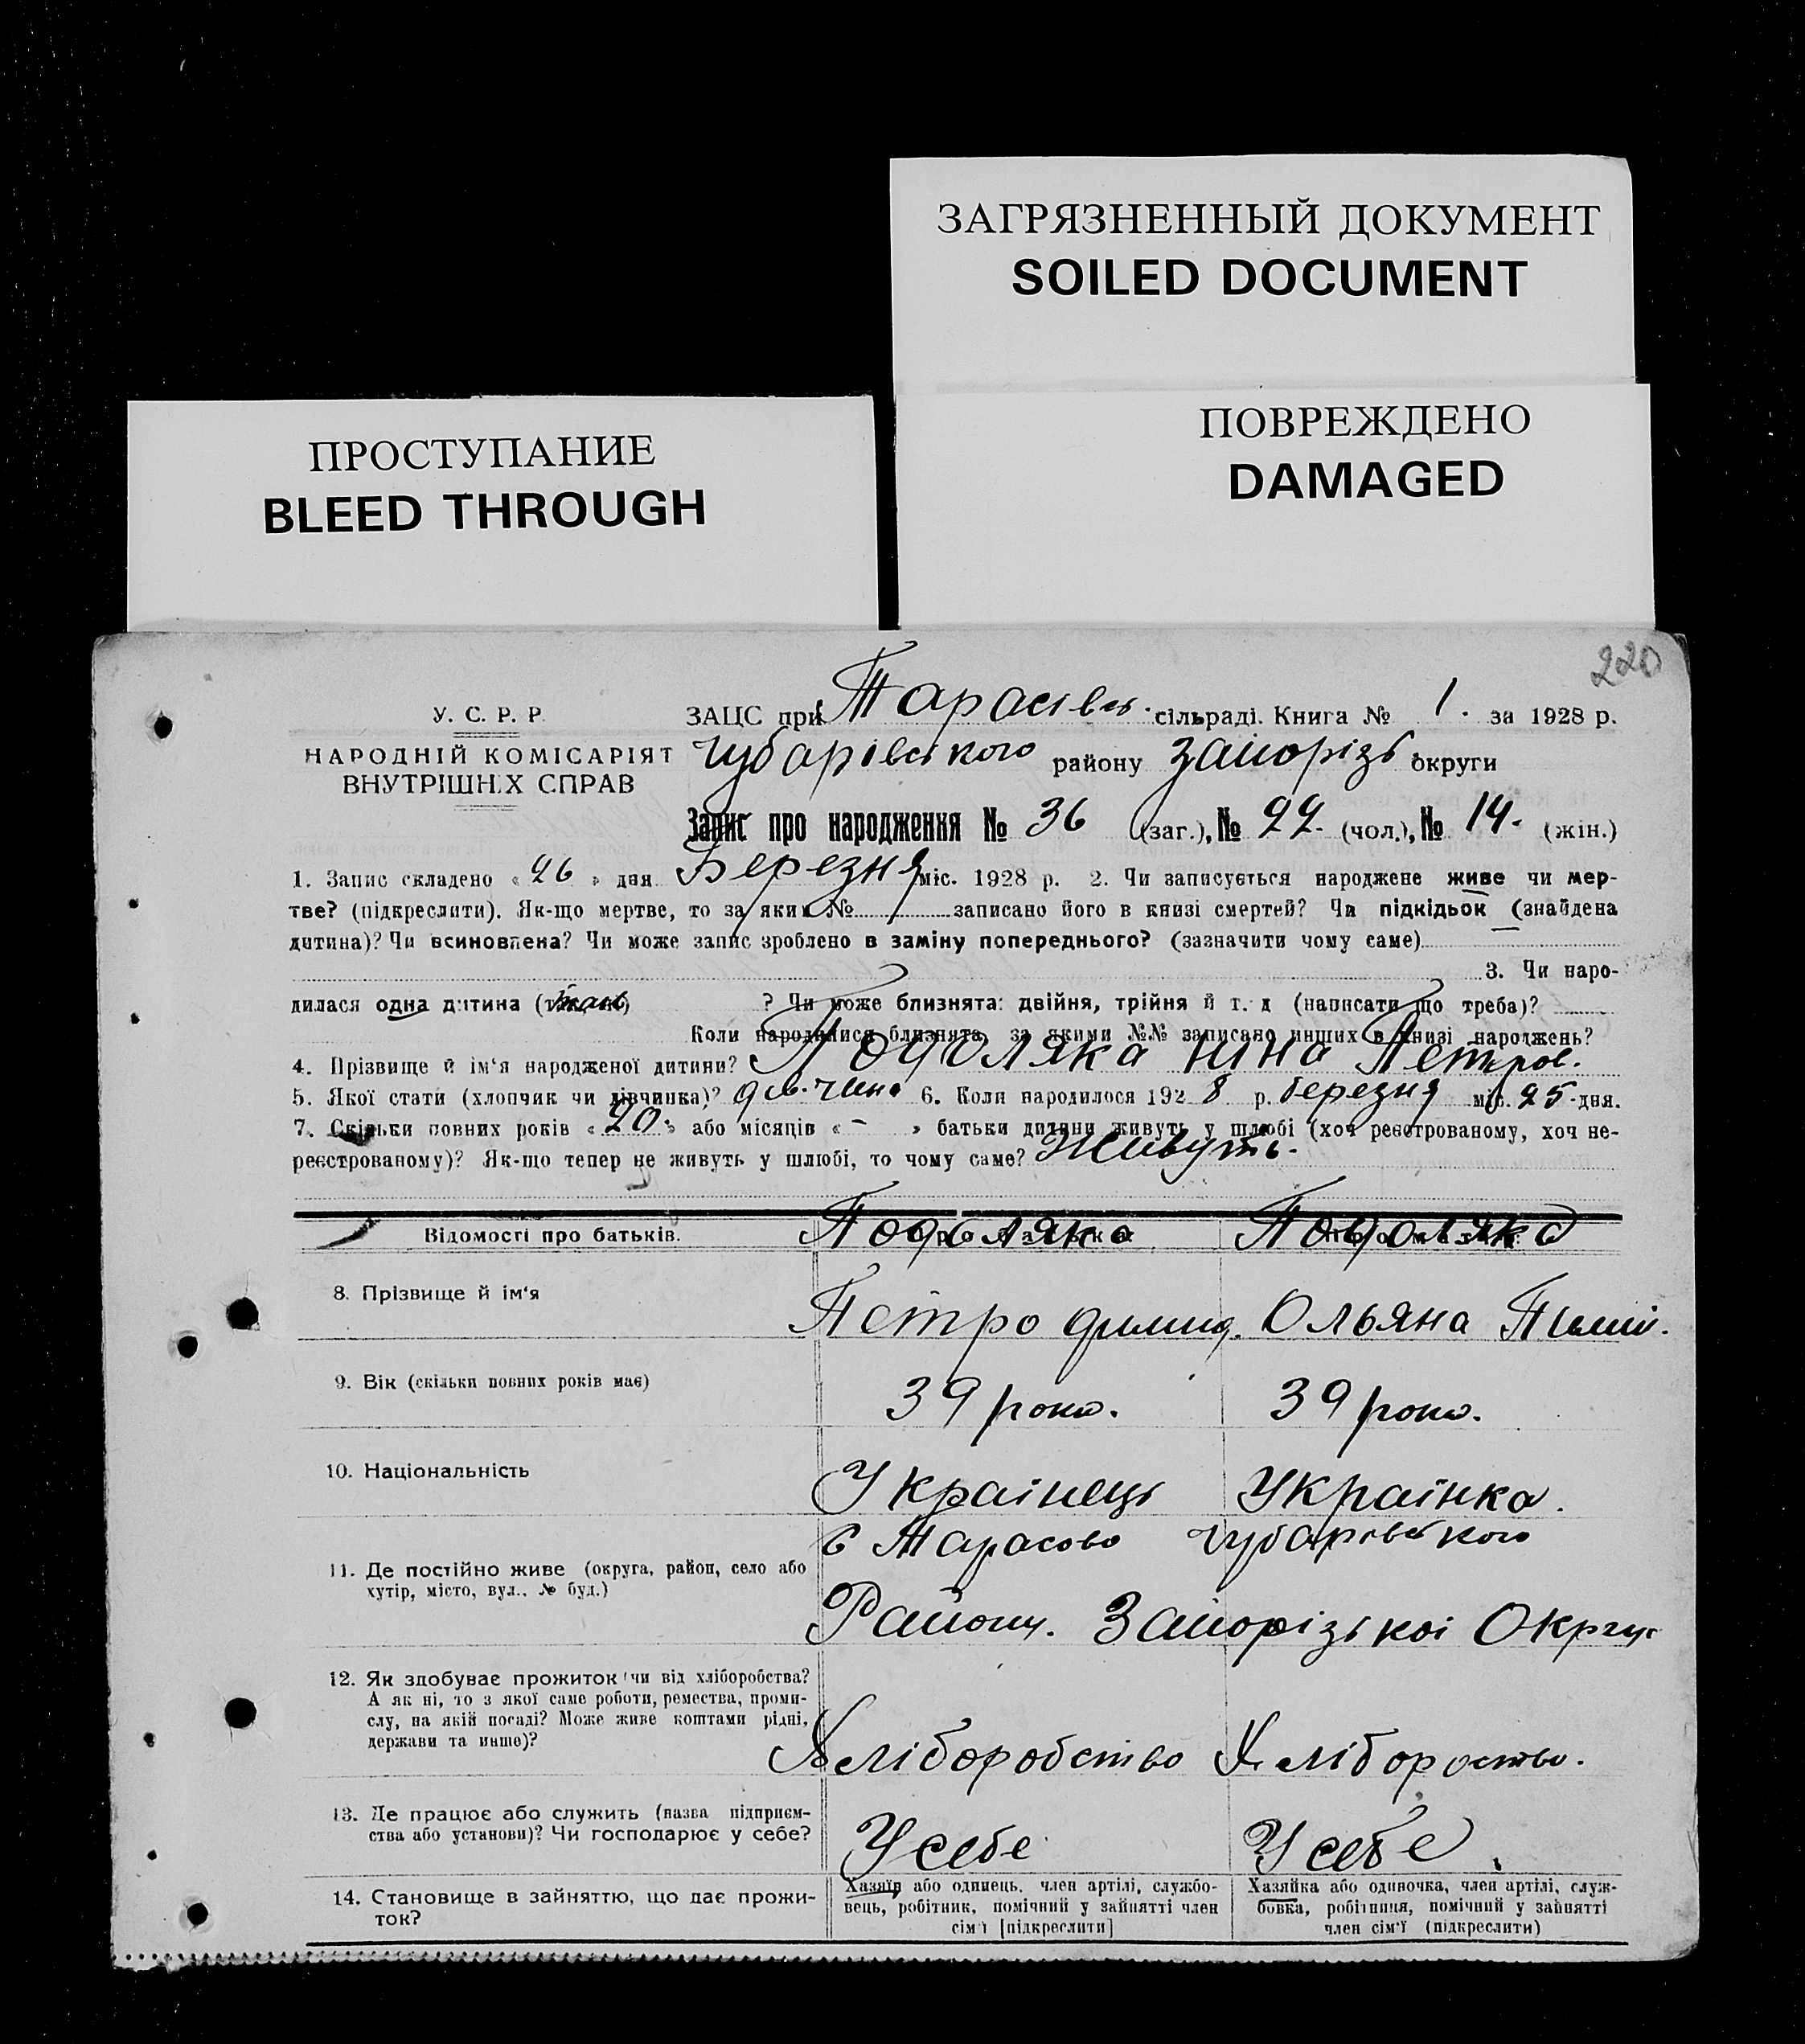 ЗАГРЯЗНЕННЫЙ ДОКУМЕНТ
SOILED DOCUMENT
ПРОСТУПАНИЕ
BLEED THROUGH
ПОВРЕЖДЕНО
DAMAGED
220
У. С. Р. Р.
НАРОДНІЙ КОМІСАРІЯТ
ВНУТРІШНІХ СПРАВ
ЗАЦС при Тарасівсь. сільраді. Книга № 1. за 1928 р.
Чубарівського району Запорізь округи
Запис про народження № 36 (заг.), № 22. (чол.), № 14. (жін.)
1. Запис складено « 26 » дня Березня міс. 1928 р. 2. Чи записується народжене живе чи мер-
тве? (підкреслити). Як-що мертве, то за яким № записано його в книзі смертей? Чи підкідьок (знайдена
дитина)? Чи всиновлена? Чи може запис зроблено в заміну попереднього? (зазначити чому саме)
3. Чи наро-
дилася одна дитина ? Чи може близнята: двійня, трійня й т. д (написати що треба)?
Коли народилися близнята, за якими №№ записано инших в книзі народжень?
4. Прізвище й ім'я народженої дитини? Подоляка Ніна Петров.
5. Якої стати (хлопчик чи дівчинка)? 6. Коли народилося 192 8 р. березня міс. 25 дня.
7. Скільки повних років « 20. » або місяців « - » батьки дитини живуть у шлюбі (хоч реєстрованому, хоч не-
реєстрованому)? Як-що тепер не живуть у шлюбі, то чому саме? Живуть.
Відомості про батьків. Подоляка Подоляка
8. Прізвище й ім'я Петро Ольяна
9. Вік (скільки повних років має) 39 роки. 39 роки.
10. Національність Українець Українка.
11. Де постійно живе (округа, район, село або
хутір, місто, вул., № буд.)
с Тарасово Чубарівського
Району. Запорізькоі Округи
12. Як здобуває прожиток (чи від хліборобства?
А як ні, то з якої саме роботи, ремества, проми-
слу, на якій посаді? Може живе коштами рідні,
держави та инше)?
Хліборобство Хлібороство.
13. Де працює або служить (назва підприєм-
ства або установи)? Чи господарює у себе?
У себе У себе
14. Становище в зайняттю, що дає прожи-
ток?
Хазяїн або одинець, член артілі, службо-
вець, робітник, помічний у зайнятті член
сім'ї [підкреслити]
Хазяйка або одиночка, член артілі, служ-
бовка, робітниця, помічний у зайнятті
член сім'ї (підкреслити)